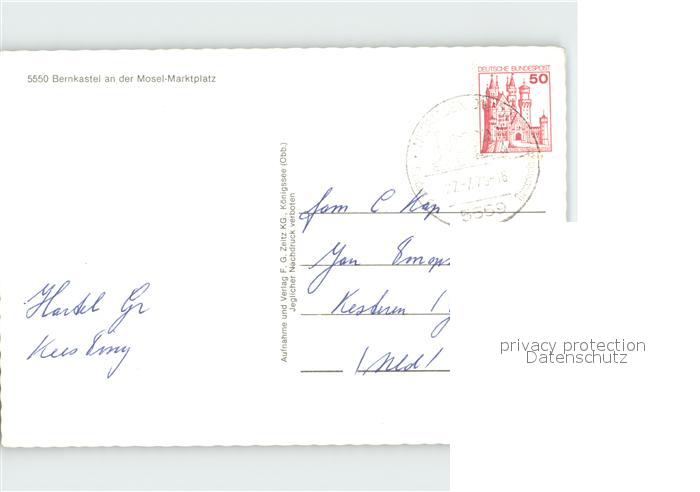 5550 Bernkastel an der Mosel-Marktplatz
DEUTSCHE BUNDESPOST
50
5559
Aufnahme und Verlag F. G. Zeitz KG., Königssee (Obb.)
Jeglicher Nachdruck verboten
fam C Kap
Jan
Kesteren
(Nld)
Hartel Gr
Kees
privacy protection
Datenschutz